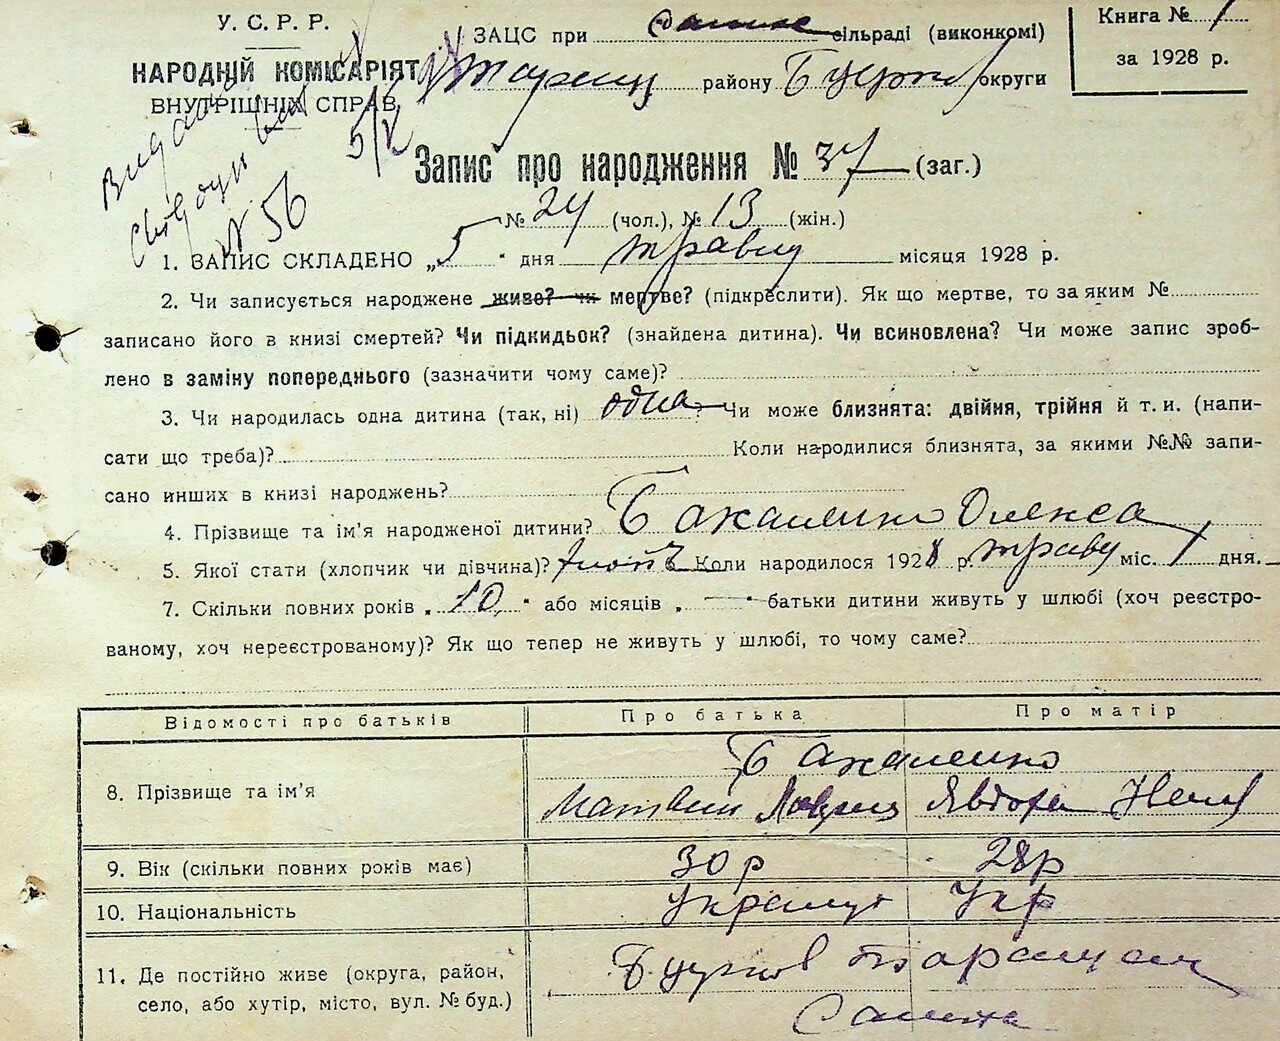 У. С. Р. Р.
НАРОДНІЙ КОМІСАРІЯТ
ВНУТРІШНІХ СПРАВ
ЗАЦС при сільраді (виконкомі)
району округи
Книга № 1
за 1928 р.
5/V
№ 56
Запис про народження № 37 (заг.)
№ 24 (чол.), № 13 (жін.)
1. ЗАПИС СКЛАДЕНО „ 5 “ дня травня місяця 1928 р.
2. Чи записується народжене живе? чи мертве? (підкреслити). Як що мертве, то за яким №
записано його в книзі смертей? Чи підкидьок? (знайдена дитина). Чи всиновлена? Чи може запис зроб-
лено в заміну попереднього (зазначити чому саме)?
3. Чи народилась одна дитина (так, ні) одна Чи може близнята: двійня, трійня й т. и. (напи-
сати що треба)? Коли народилися близнята, за якими №№ запи-
сано инших в книзі народжень?
4. Прізвище та ім’я народженої дитини? Бакаленко Олекса
5. Якої стати (хлопчик чи дівчина)? хлопч Коли народилося 1928 р. травня міс. 1 дня.
7. Скільки повних років „ 10 “ або місяців „ — “ батьки дитини живуть у шлюбі (хоч реєстро-
ваному, хоч нереєстрованому)? Як що тепер не живуть у шлюбі, то чому саме?
Відомості про батьків Про батька Про матір
8. Прізвище та ім’я Бакаленко
Матвій Явдоха
9. Вік (скільки повних років має) 30 р 28 р
10. Національність Укр
11. Де постійно живе (округа, район,
село, або хутір, місто, вул. № буд.)